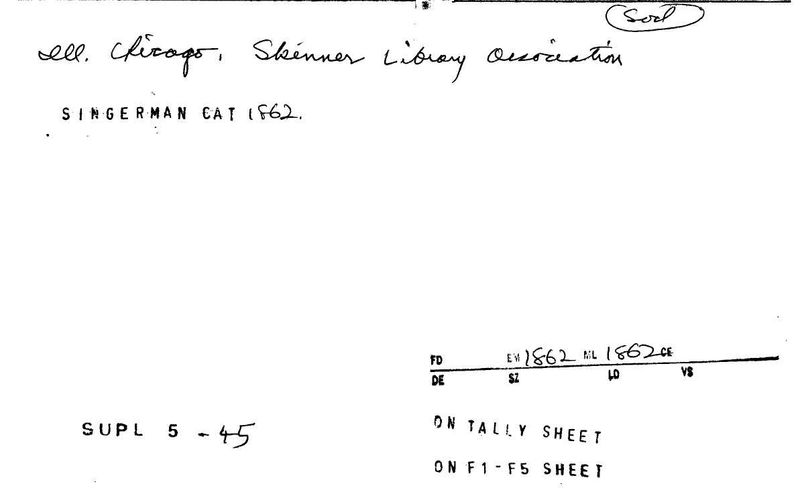 Socl
Ill. Chicago. Skinner Library Association
SINGERMAN CAT 1862.
FD EM 1862 ML 1862 CE
DE SZ LD VS
SUPL 5 - 45
ON TALLY SHEET
ON F1-F5 SHEET